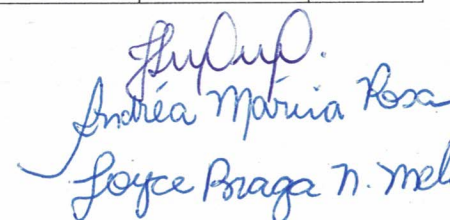 Andréa Márcia Rosa
Joyce Braga N. Mel